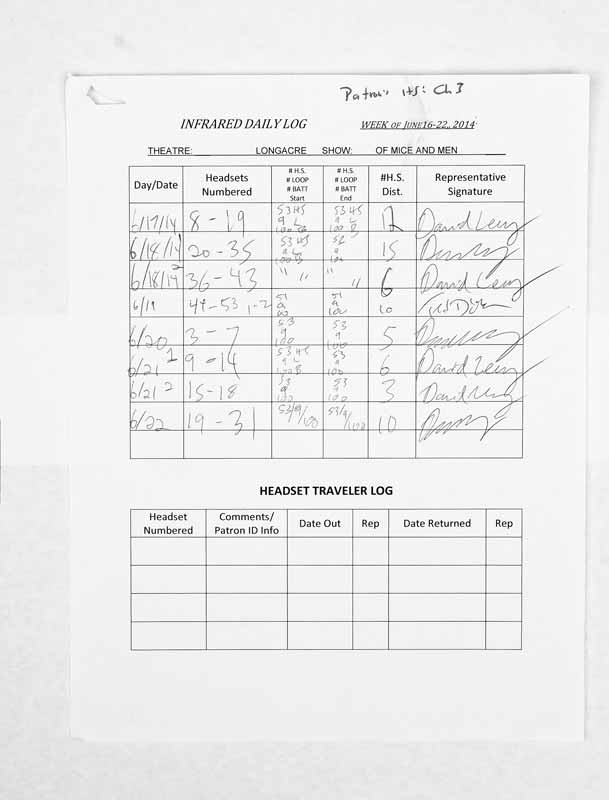 Patron's Hs: Ch I
INFRARED DAILY LOG WEEK OF JUNE16-22, 2014
THEATRE: LONGACRE SHOW: OF MICE AND MEN
Day/Date Headsets Numbered # H.S. # LOOP # BATT Start # H.S. # LOOP # BATT End #H.S. Dist. Representative Signature
6/17/14 8 - 19 53 HS 9 L 100 B 53 HS 9 L 100 B 12 David Levy
6/18/14 20 - 35 53 HS 9 L 100 B 52 9 100 15
6/18/14 2 36 - 43 " " " " 6 David Levy
6/19 44-53 1-2 51 9 100 51 9 100 10
6/20 3 - 7 53 9 100 53 9 100 5
6/21 1 9 - 14 53 HS 9 L 100 B 53 9 100 6 David Levy
6/21 2 15-18 53 9 100 53 9 100 3 David Levy
6/22 19 - 31 53/9/100 53/9/100 10
HEADSET TRAVELER LOG
Headset Numbered Comments/ Patron ID Info Date Out Rep Date Returned Rep